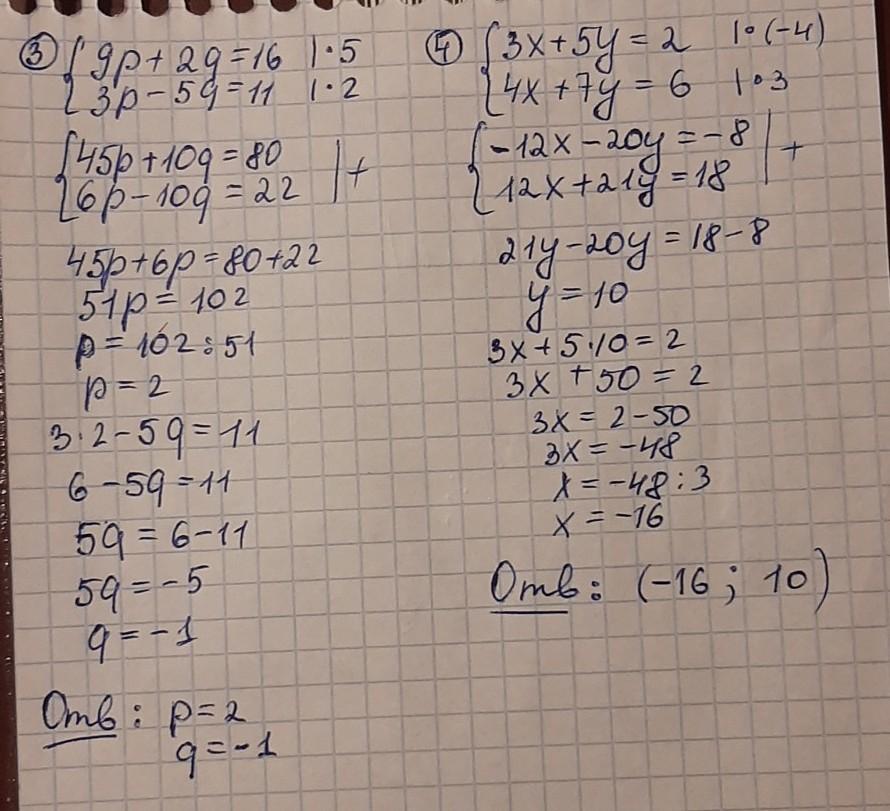 ③ { 9p + 2q = 16 | · 5
3p − 5q = 11 | · 2
{ 45p + 10q = 80 | +
6p − 10q = 22
45p + 6p = 80 + 22
51p = 102
p = 102 : 51
p = 2
3 · 2 − 5q = 11
6 − 5q = 11
5q = 6 − 11
5q = −5
q = −1
Отв : p = 2
q = −1
④ { 3x + 5y = 2 | · (−4)
4x + 7y = 6 | · 3
{ −12x − 20y = −8 | +
12x + 21y = 18
21y − 20y = 18 − 8
y = 10
3x + 5 · 10 = 2
3x + 50 = 2
3x = 2 − 50
3x = −48
x = −48 : 3
x = −16
Отв : (−16 ; 10)